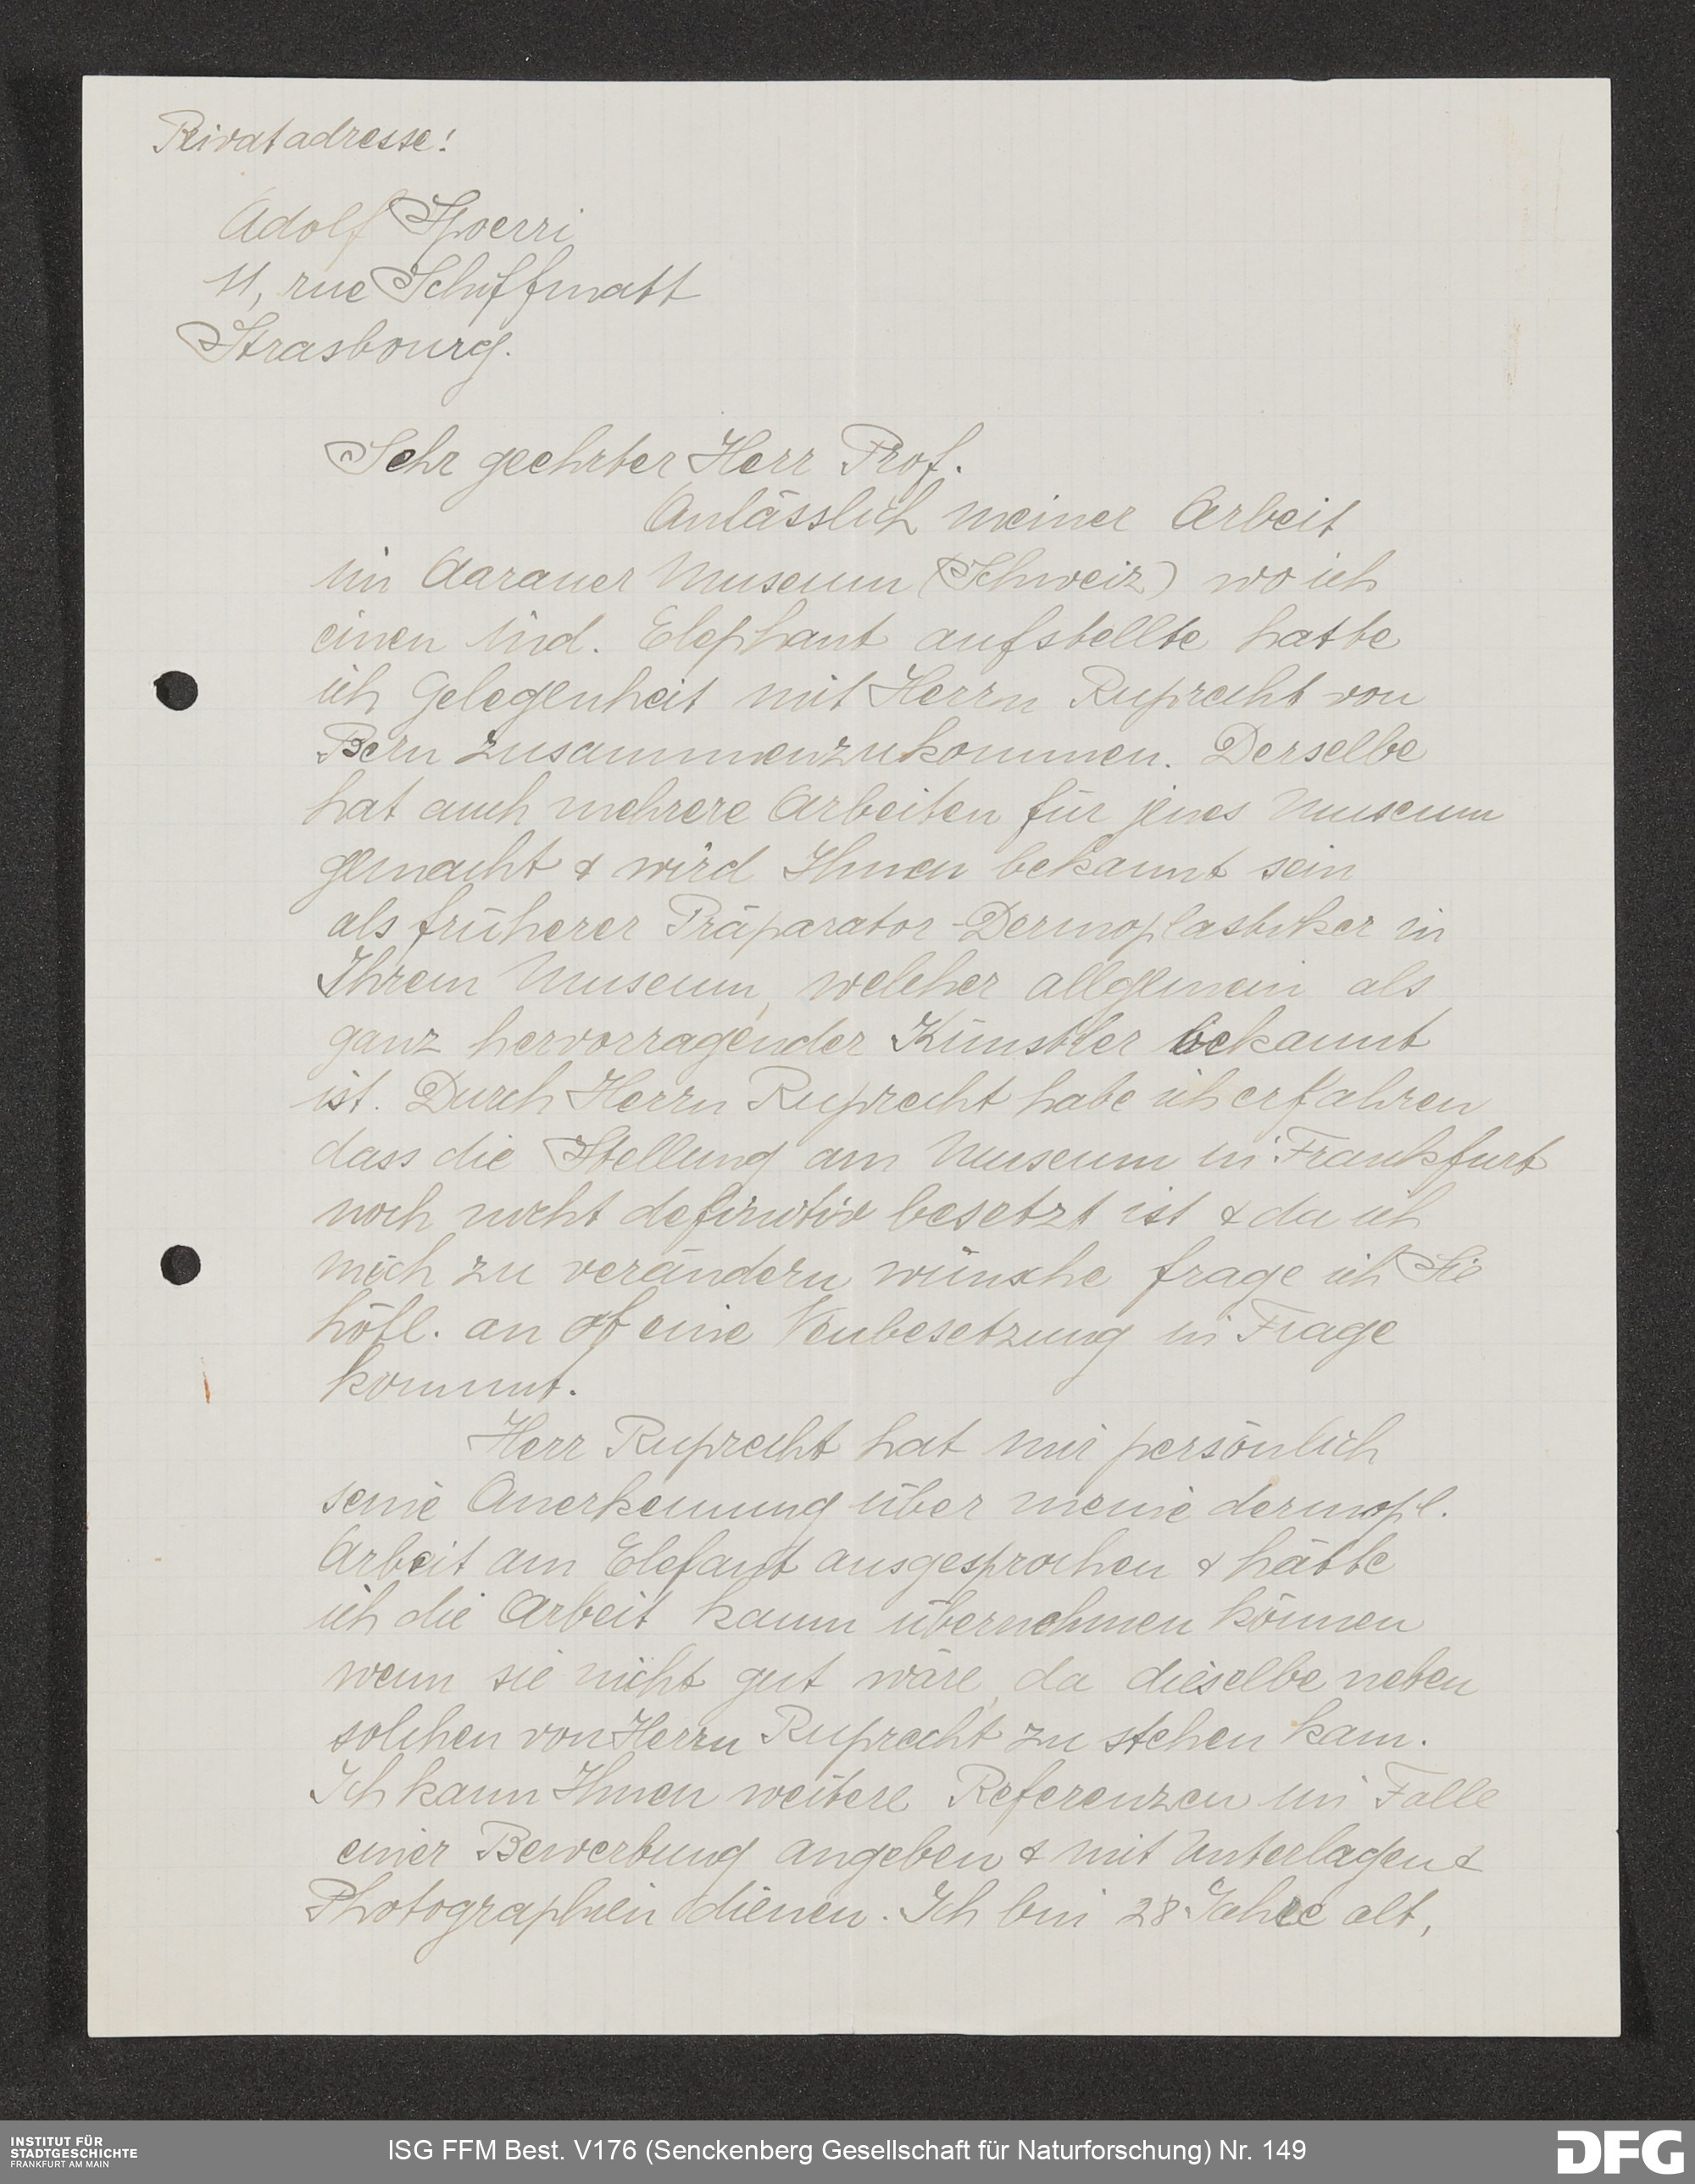 Privatadresse!
Adolf Spoerri
11, rue Schiffmatt
Strasbourg.
Sehr geehrter Herr Prof.
Anlässlich meiner Arbeit
im Aarauer Museum (Schweiz) wo ich
einen ind. Elephant aufstellte hatte
ich Gelegenheit mit Herrn Ruprecht von
Bern zusammenzukommen. Derselbe
hat auch mehrere Arbeiten für jenes Museum
gemacht & wird Ihnen bekannt sein
als früherer Präparator-Dermoplastiker in
Ihrem Museum, welcher allgemein als
ganz hervorragender Künstler bekannt
ist. Durch Herrn Ruprecht habe ich erfahren
dass die Stellung am Museum in Frankfurt
noch nicht definitiv besetzt ist & da ich
mich zu verändern wünsche frage ich Sie
höfl. an ob eine Neubesetzung in Frage
kommt.
Herr Ruprecht hat mir persönlich
seine Anerkennung über meine dermopl.
Arbeit am Elefant ausgesprochen & hätte
ich die Arbeit kaum übernehmen können
wenn sie nicht gut wäre, da dieselbe neben
solchen von Herrn Ruprecht zu stehen kam.
Ich kann Ihnen weitere Referenzen im Falle
einer Bewerbung angeben & mit Unterlagen &
Photographien dienen. Ich bin 28 Jahre alt,
INSTITUT FÜR
STADTGESCHICHTE
FRANKFURT AM MAIN
ISG FFM Best. V176 (Senckenberg Gesellschaft für Naturforschung) Nr. 149
DFG